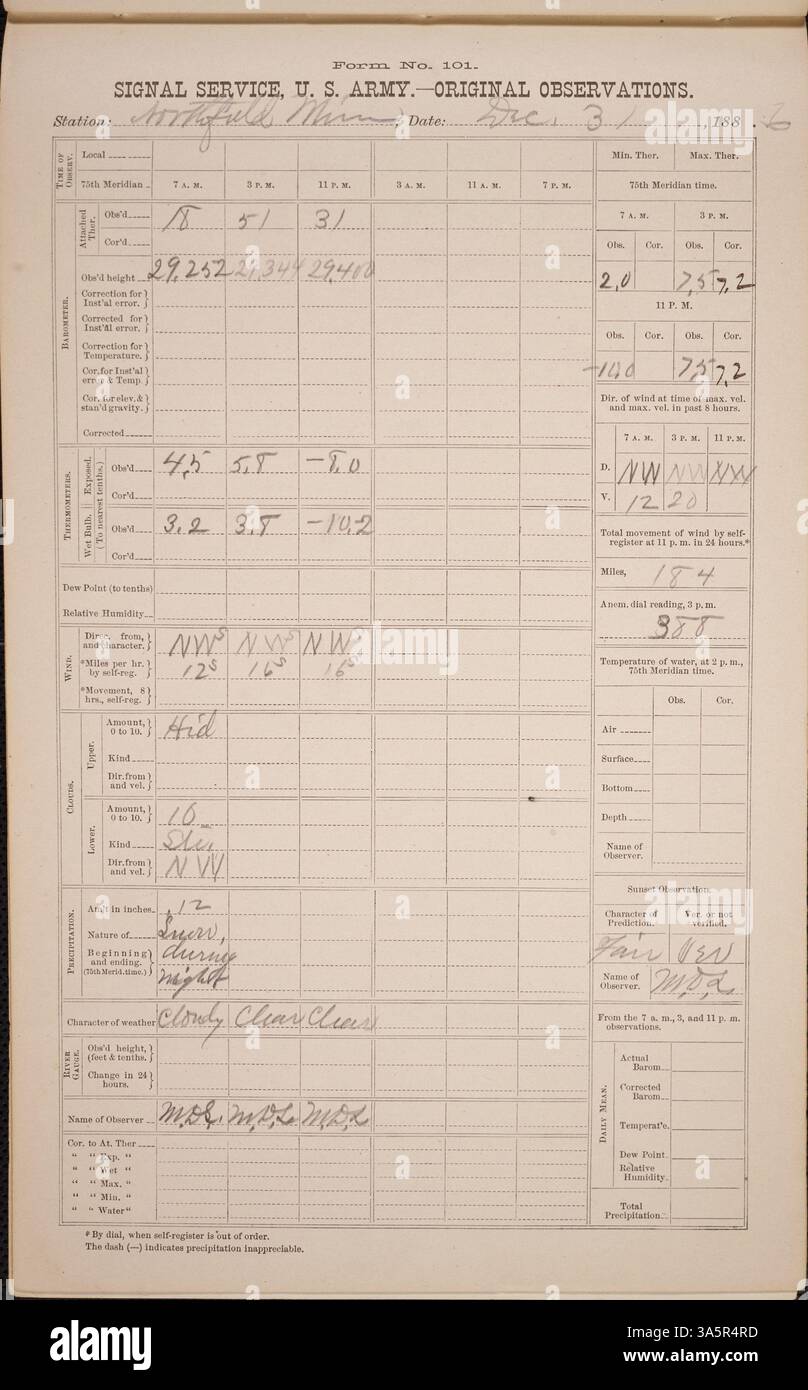 Form No. 101.
SIGNAL SERVICE, U. S. ARMY.—ORIGINAL OBSERVATIONS.
Station: Northfield Minn, Date: Dec. 31, 1886
TIME OF OBSERV.
Local
75th Meridian 7 A. M. 3 P. M. 11 P. M. 3 A. M. 11 A. M. 7 P. M.
BAROMETER.
Attached Ther.
Obs'd 18 51 31
Cor'd
Obs'd height 29,252 29,344 29,400
Correction for Inst'al error.
Corrected for Inst'al error.
Correction for Temperature.
Cor. for Inst'al error & Temp.
Cor. for elev. & stan'd gravity.
Corrected
THERMOMETERS.
Exposed.
(To nearest tenths.)
Obs'd 4,5 5,8 -8,0
Cor'd
Wet Bulb.
Obs'd 3.2 3,8 -10,2
Cor'd
Dew Point (to tenths)
Relative Humidity
WIND.
Direc. from, and character. NWs NWs NW
*Miles per hr. by self-reg. 12s 16s 16s
*Movement, 8 hrs., self-reg.
CLOUDS.
Upper.
Amount, 0 to 10. Hid
Kind
Dir. from and vel.
Lower.
Amount, 0 to 10. 10
Kind
Dir. from and vel. NW
PRECIPITATION.
Am't in inches. .12
Nature of Snow,
Beginning and ending. (75th Merid. time.) during night
Character of weather Cloudy Clear Clear
RIVER GAUGE.
Obs'd height, (feet & tenths.)
Change in 24 hours.
Name of Observer M.D.L. M.D.L. M.D.L.
Cor. to At. Ther
" " Exp. "
" " Wet "
" " Max. "
" " Min. "
" " Water "
* By dial, when self-register is out of order.
The dash (—) indicates precipitation inappreciable.
Min. Ther. Max. Ther.
75th Meridian time.
7 A. M. 3 P. M.
Obs. Cor. Obs. Cor.
2,0 7,5 7,2
11 P. M.
Obs. Cor. Obs. Cor.
-10,0 7,5 7,2
Dir. of wind at time of max. vel. and max. vel. in past 8 hours.
7 A. M. 3 P. M. 11 P. M.
D. NW NW NW
V. 12 20
Total movement of wind by self-register at 11 p. m. in 24 hours.*
Miles, 184
Anem. dial reading, 3 p. m.
388
Temperature of water, at 2 p. m., 75th Meridian time.
Obs. Cor.
Air
Surface
Bottom
Depth
Name of Observer.
Sunset Observation.
Character of Prediction. Ver. or not verified.
Fair Ver
Name of Observer. M.D.L.
From the 7 a. m., 3, and 11 p. m. observations.
DAILY MEAN.
Actual Barom
Corrected Barom
Temperat'e.
Dew Point
Relative Humidity
Total Precipitation.
alamy
Image ID: 3A5R4RD
www.alamy.com